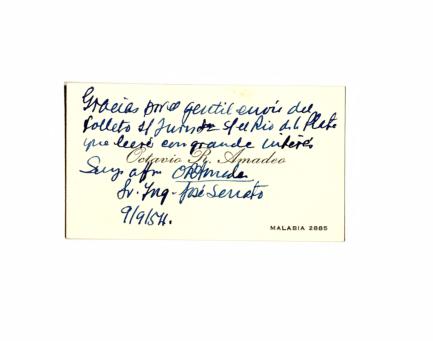 Gracias por el gentil envío del
folleto s/ Jurisdn s/ el Rio de la Plata
que leeré con grande interés
Octavio R. Amadeo
Suyo afmo ORAmadeo
Sr. Ing. José Serrato
9/9/54.
MALABIA 2885